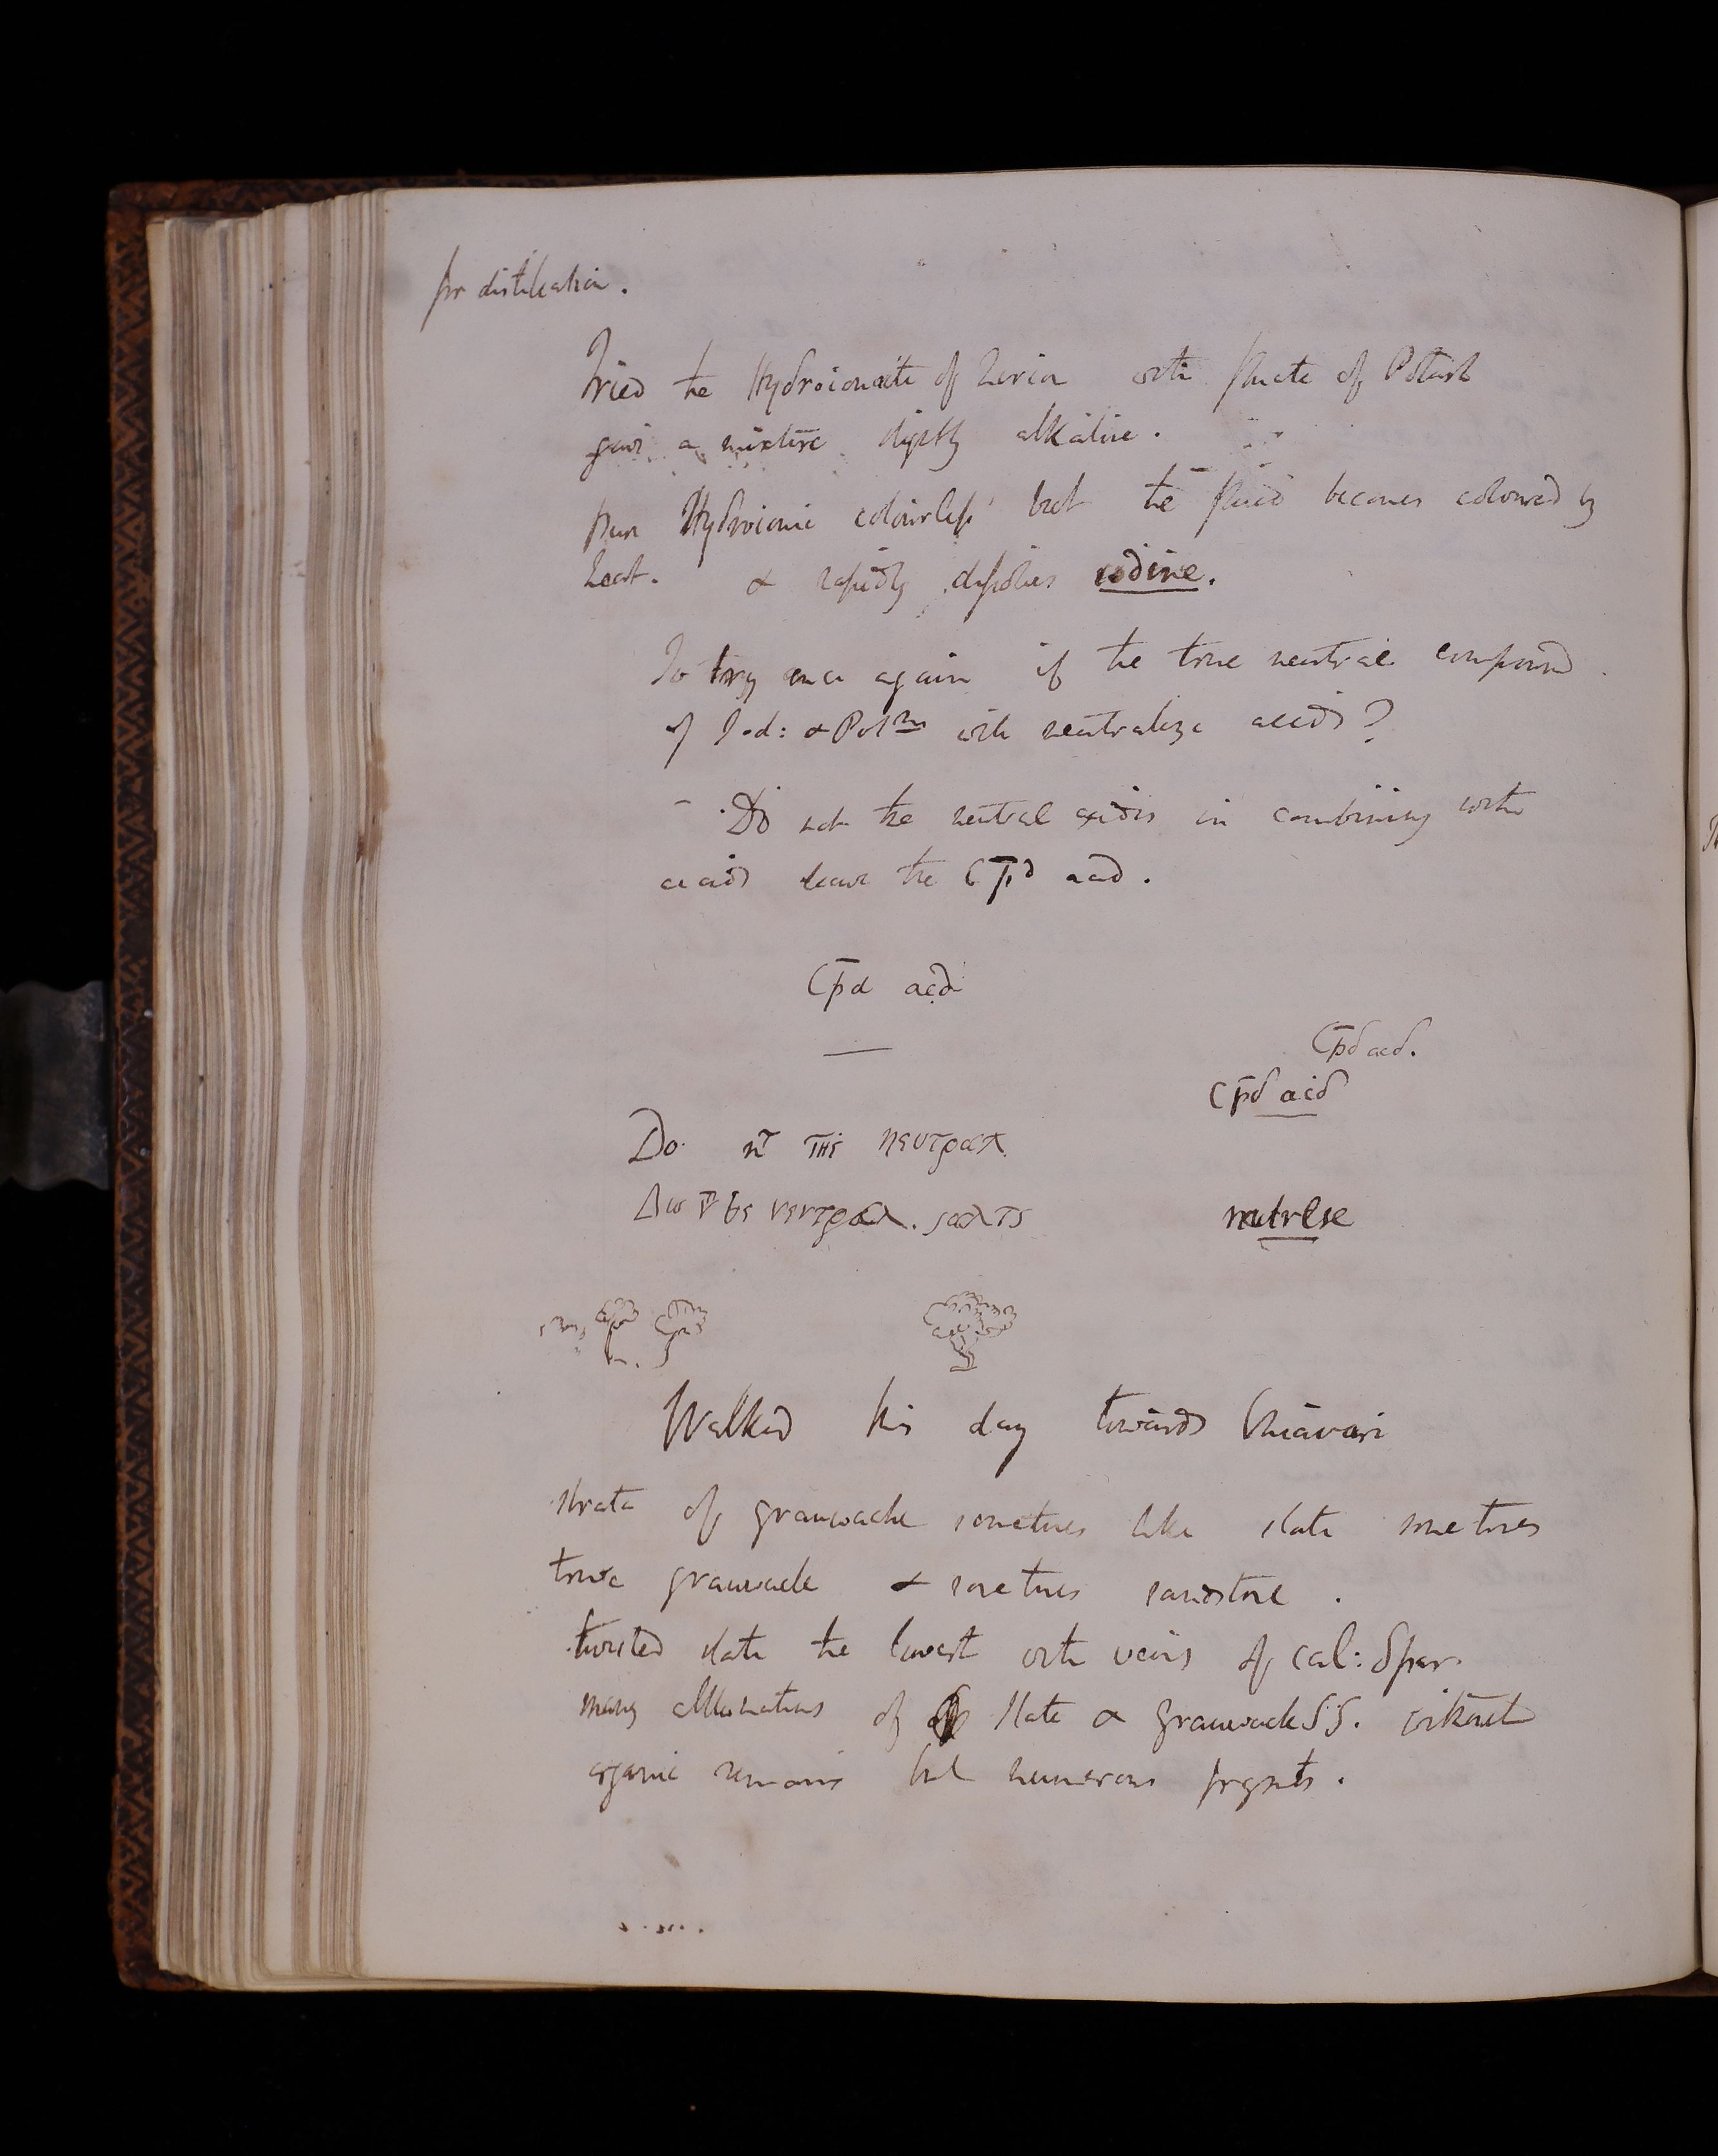 for distillation.
Tried the Hydroionate of Zircon with fluate of Potash
gave a mixture slightly alkaline.
pure Hydroionic colourless but the fluid becomes coloured by
heat. & rapidly dissolves iodine.
To try once again if the true neutral compound
of Iod: & Potm will neutralize acids?
- Do not the neutral oxides in combining with
acids leave the Cpd acd.
Cpd acd
Cpd acd.
Cpd acid
Do nt THE ηευτραλ
Δω νευτραλ. σαλτς
Walked this day towards Chiavari
strata of grauwacke sometimes like slate sometimes
true grauwacke & sometimes sandstone.
twisted slate the lowest with veins of cal: Spar.
many alternations of slate & grauwacke SS. without
organic remains but numerous frgmts.